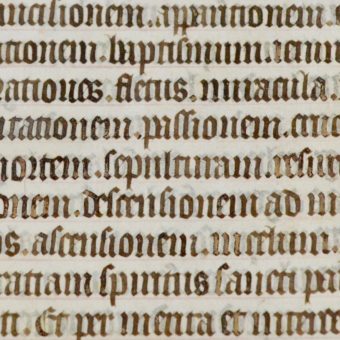 umcisionem. apparitionem.
tationem. baptismum. ieiuni
rationes. fletus. miracula.
utationem. passionem. cruc
mortem. sepulturam. resur
onem. descensionem ad in
os. ascensionem. in celum.
ratiam spiritus sancti pa
ti. Et per merita et interc